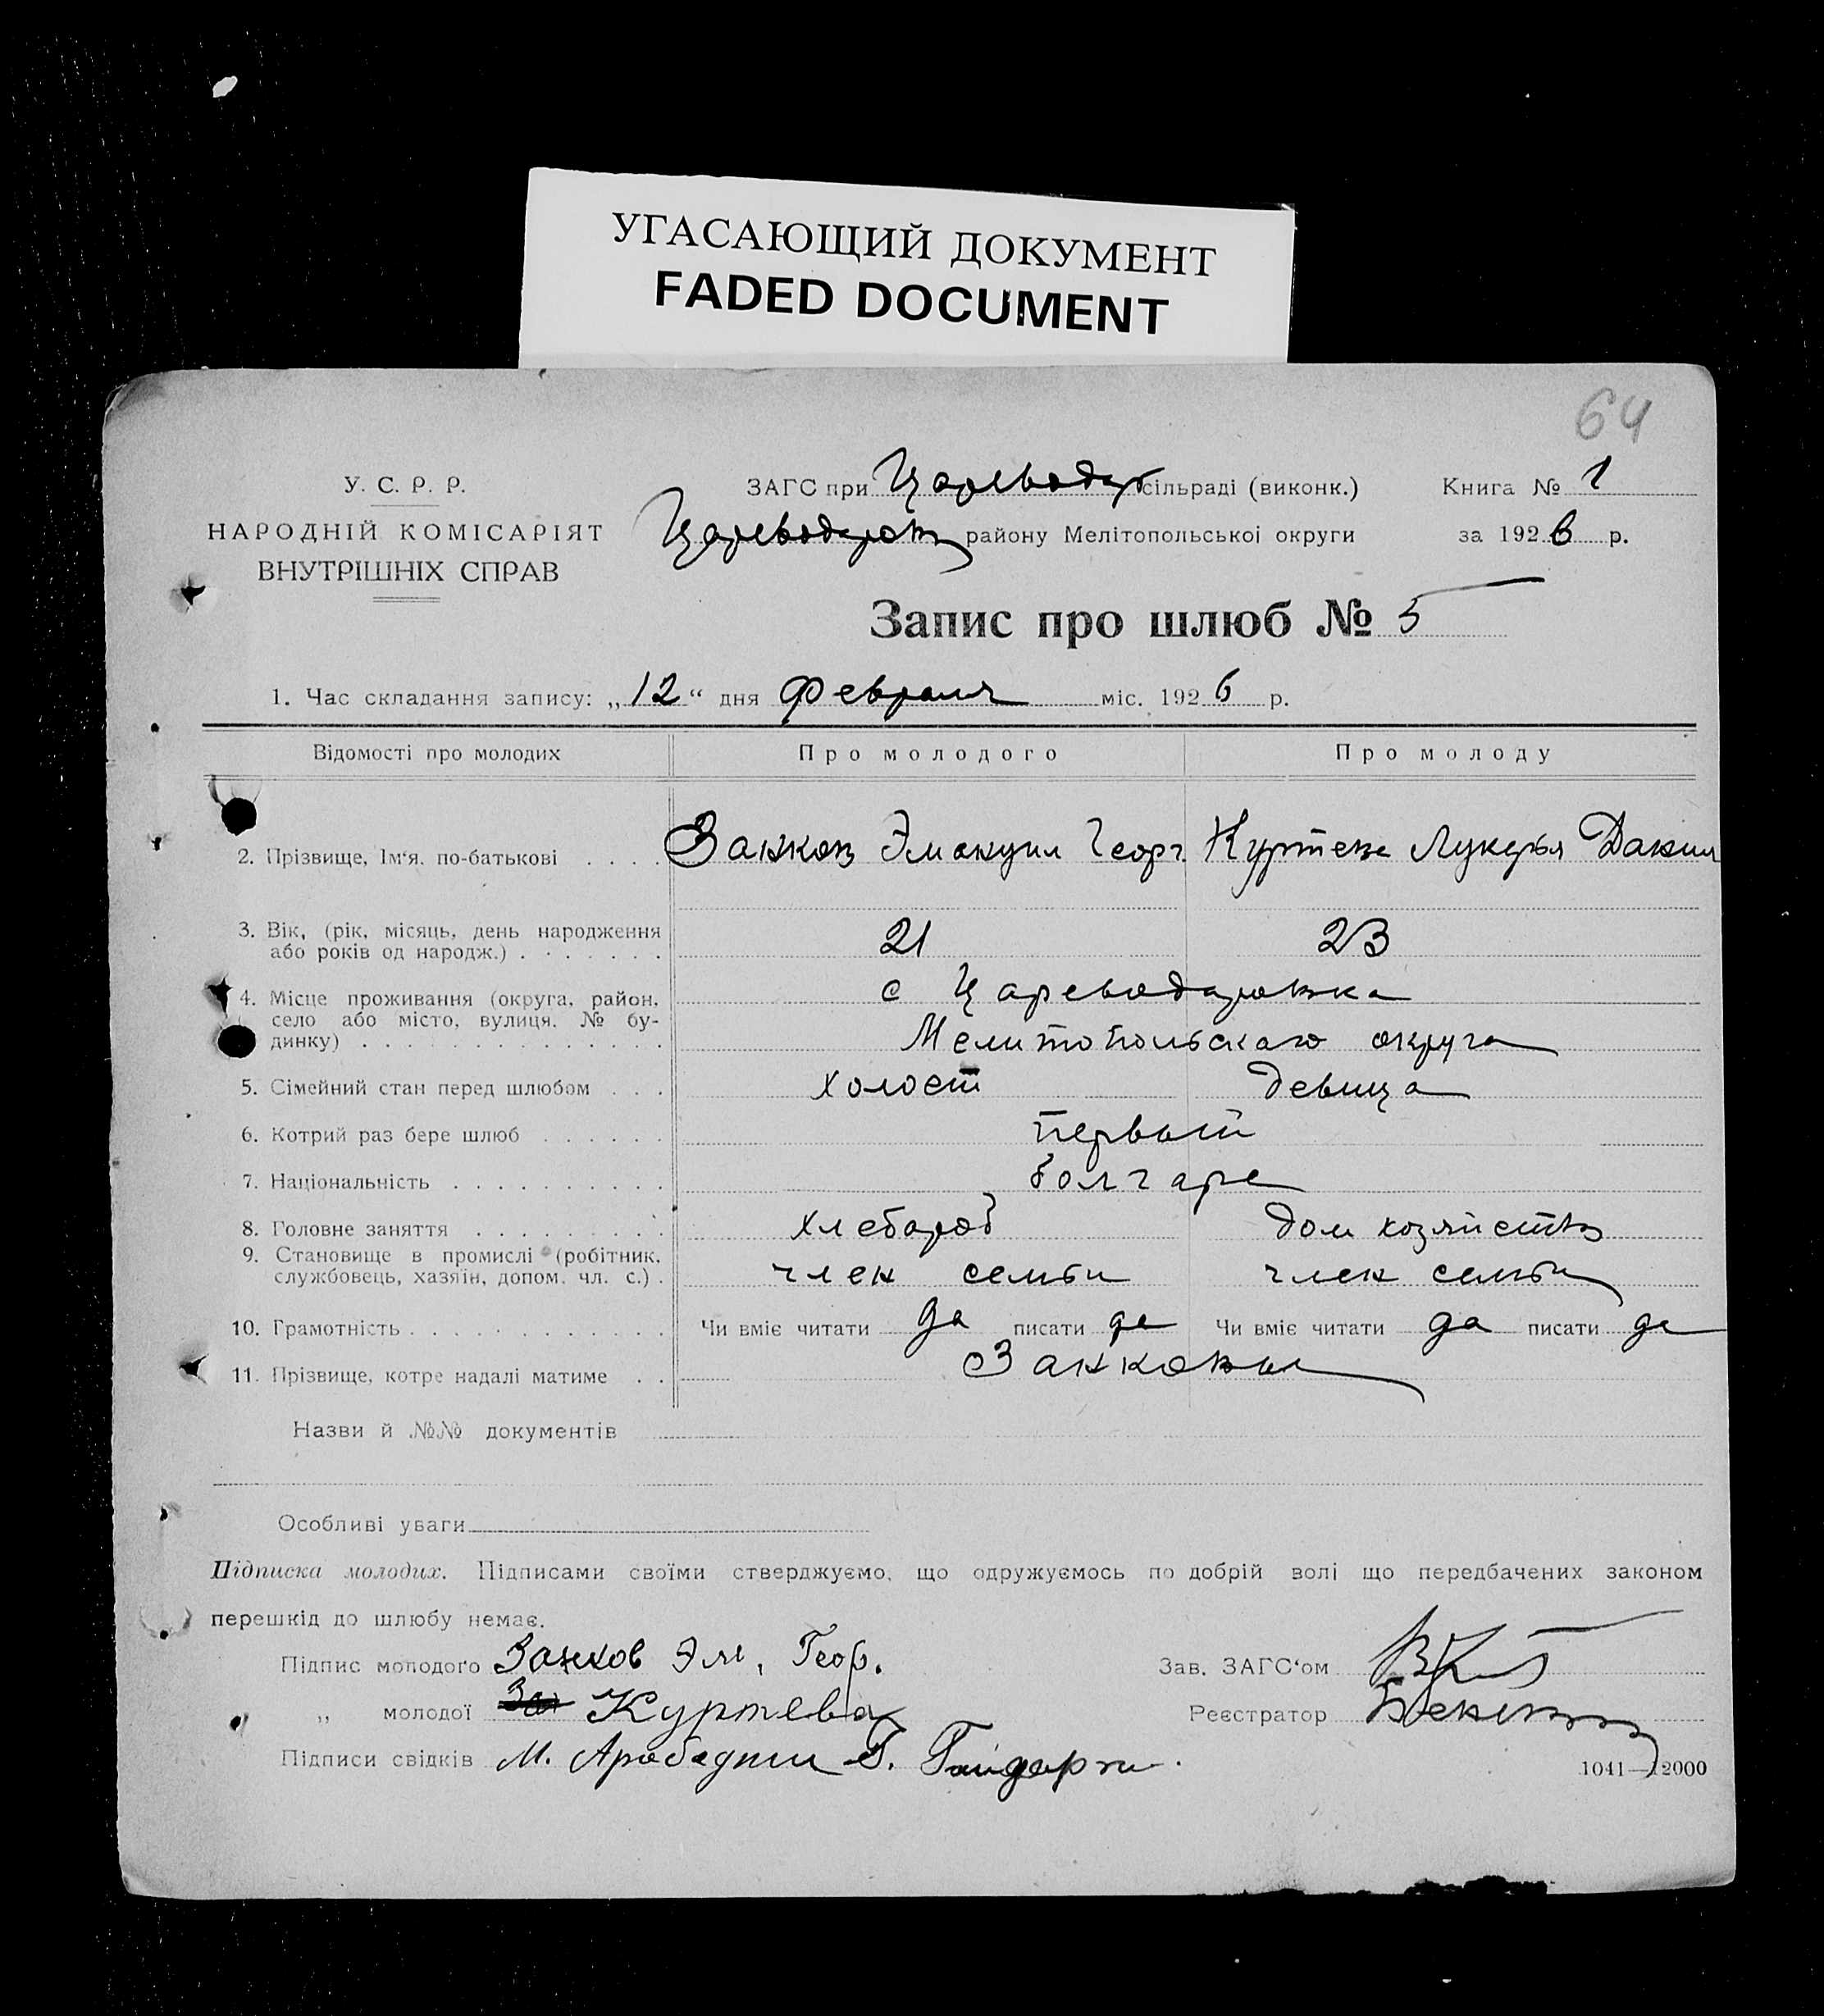 УГАСАЮЩИЙ ДОКУМЕНТ
FADED DOCUMENT
64
У. С. Р. Р.
НАРОДНІЙ КОМІСАРІЯТ
ВНУТРІШНІХ СПРАВ
ЗАГС при Цареводар сільраді (виконк.)
Цареводаров району Мелітопольської округи
Книга № 1
за 1926 р.
Запис про шлюб № 5
1. Час складання запису: „12“ дня февраля міс. 1926 р.
Відомості про молодих Про молодого Про молоду
2. Прізвище, Ім'я, по-батькові . . . . Занков Эмануил Георг. Куртева Лукерья Данил
3. Вік, (рік, місяць, день народження
або років од народж.) . . . . . . . 21 23
4. Місце проживання (округа, район, с Цареводаровка
село або місто, вулиця, № бу-
динку) . . . . . . . . . . . . . . Мелитопольскаго округа
5. Сімейний стан перед шлюбом . . . холост девица
6. Котрий раз бере шлюб . . . . . . первый
7. Національність . . . . . . . . . . болгаре
8. Головне заняття . . . . . . . . . хлебороб дом хозяйство
9. Становище в промислі (робітник,
службовець, хазяїн, допом. чл. с.) . член семьи член семьи
10. Грамотність . . . . . . . . . . . . Чи вміє читати да писати да Чи вміє читати да писати да
11. Прізвище, котре надалі матиме . . Занковы
Назви й №№ документів
Особливі уваги
Підписка молодих. Підписами своїми стверджуємо, що одружуємось по добрій волі що передбачених законом
перешкід до шлюбу немає.
Підпис молодого Занков Эм. Геор.
„ молодої За Куртева
Підписи свідків М. Арабаджи Г. Гайдаржи.
Зав. ЗАГС'ом
Реєстратор
1041—12000